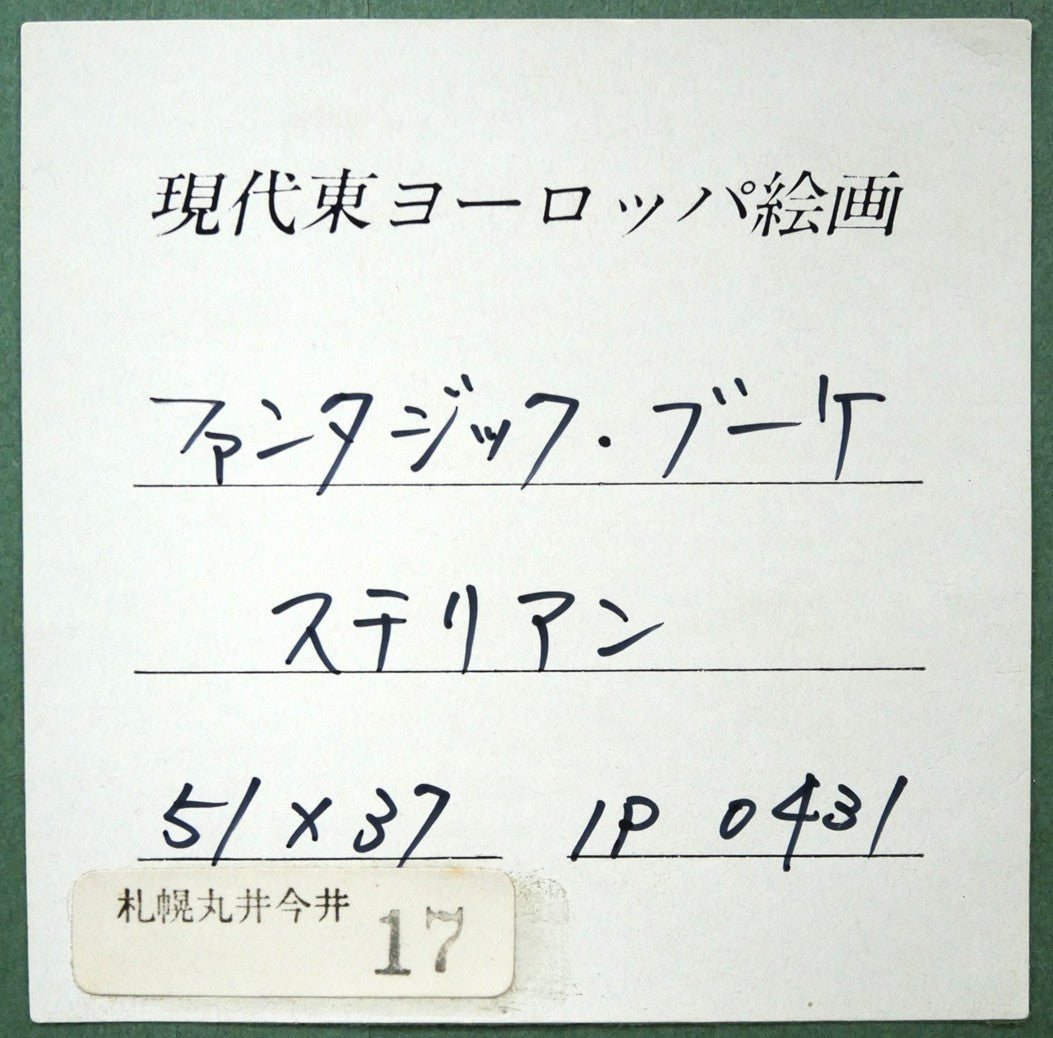 現代東ヨーロッパ絵画
ファンタジック・ブーケ
ステリアン
51×37 IP 0431
札幌丸井今井 17